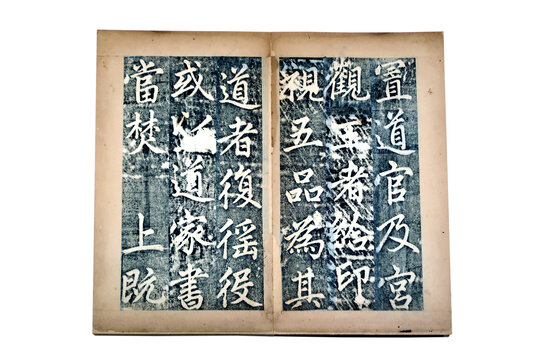 置道官及宮
觀主者給印
視五品為其
道者復徭役
或以道家書
當焚 上既